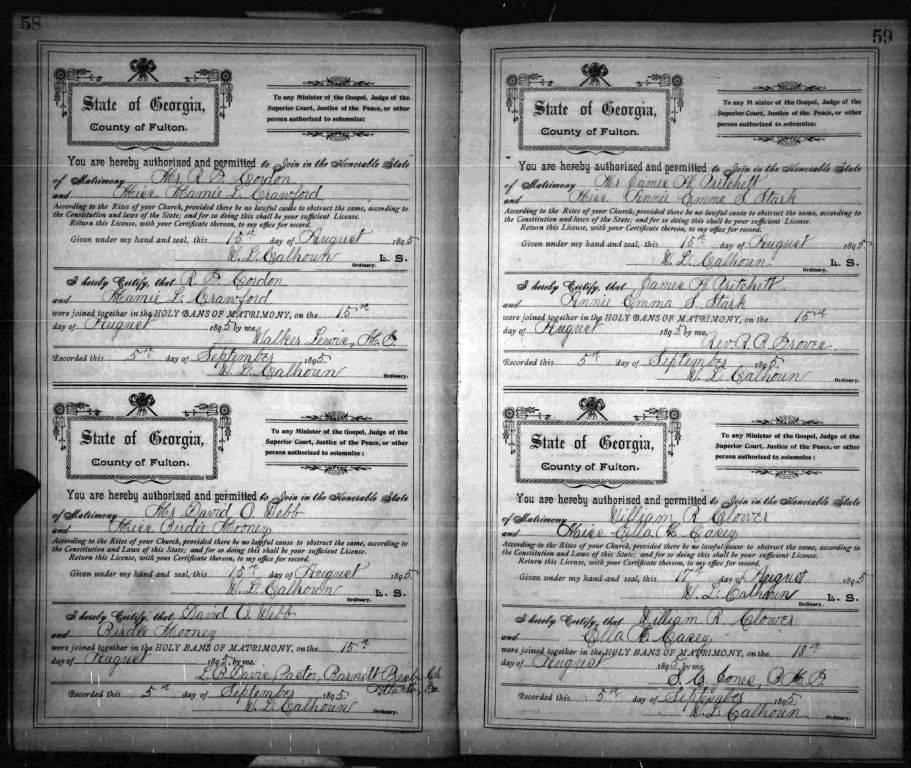 58
State of Georgia,
County of Fulton.
To any Minister of the Gospel, Judge of the
Superior Court, Justice of the Peace, or other
person authorized to solemnize:
You are hereby authorized and permitted to Join in the Honorable State
of Matrimony Mr R. P. Cordon
and Miss Mamie L. Crawford
According to the Rites of your Church, provided there be no lawful cause to obstruct the same, according to
the Constitution and laws of the State; and for so doing this shall be your sufficient License.
Return this License, with your Certificate thereon, to my office for record.
Given under my hand and seal, this 15th day of August 1895
W. L. Calhoun L. S.
Ordinary.
I hereby Certify, that R. P. Cordon
and Mamie L. Crawford
were joined together in the HOLY BANS OF MATRIMONY, on the 15th
day of August 1895 by me,
Walker Lewis, M. G.
Recorded this 5th day of September 1895.
W. L. Calhoun
Ordinary.
State of Georgia,
County of Fulton.
To any Minister of the Gospel, Judge of the
Superior Court, Justice of the Peace, or other
person authorized to solemnize:
You are hereby authorized and permitted to Join in the Honorable State
of Matrimony Mr David O. Webb
and Miss Birdie Mooney
According to the Rites of your Church, provided there be no lawful cause to obstruct the same, according to
the Constitution and Laws of this State; and for so doing this shall be your sufficient License.
Return this License, with your Certificate thereon, to my office for record.
Given under my hand and seal, this 15th day of August 1895
W. L. Calhoun L. S.
Ordinary.
I hereby Certify, that David O. Webb
and Birdie Mooney
were joined together in the HOLY BANS OF MATRIMONY, on the 15th
day of August 1895, by me,
L. B. Davis, Pastor, Barnett Presb. Ch
Atlanta, Ga
Recorded this 5th day of September 1895.
W. L. Calhoun
Ordinary.
59
State of Georgia,
County of Fulton.
To any Minister of the Gospel, Judge of the
Superior Court, Justice of the Peace, or other
person authorized to solemnize:
You are hereby authorized and permitted to Join in the Honorable State
of Matrimony Mr James A. Pritchett
and Miss Annie Emma S. Stark
According to the Rites of your Church, provided there be no lawful cause to obstruct the same, according to
the Constitution and laws of the State; and for so doing this shall be your sufficient License.
Return this License, with your Certificate thereon, to my office for record.
Given under my hand and seal, this 15th day of August 1895
W. L. Calhoun L. S.
Ordinary.
I hereby Certify, that James A Pritchett
and Annie Emma S. Stark
were joined together in the HOLY BANS OF MATRIMONY, on the 15th
day of August 1895 by me,
Rev. R. R.
Recorded this 5th day of September 1895.
W. L. Calhoun
Ordinary.
State of Georgia,
County of Fulton.
To any Minister of the Gospel, Judge of the
Superior Court, Justice of the Peace, or other
person authorized to solemnize:
You are hereby authorized and permitted to Join in the Honorable State
of Matrimony William R. Clower
and Miss Ella K. Casey
According to the Rites of your Church, provided there be no lawful cause to obstruct the same, according to
the Constitution and Laws of this State; and for so doing this shall be your sufficient License.
Return this License, with your Certificate thereon, to my office for record.
Given under my hand and seal, this 17th day of August 1895
W. L. Calhoun L. S.
Ordinary.
I hereby Certify, that William R. Clower
and Ella K. Casey
were joined together in the HOLY BANS OF MATRIMONY, on the 18th
day of August 1895, by me,
S. C. Jones,
Recorded this 5th day of September 1895.
W. L. Calhoun
Ordinary.